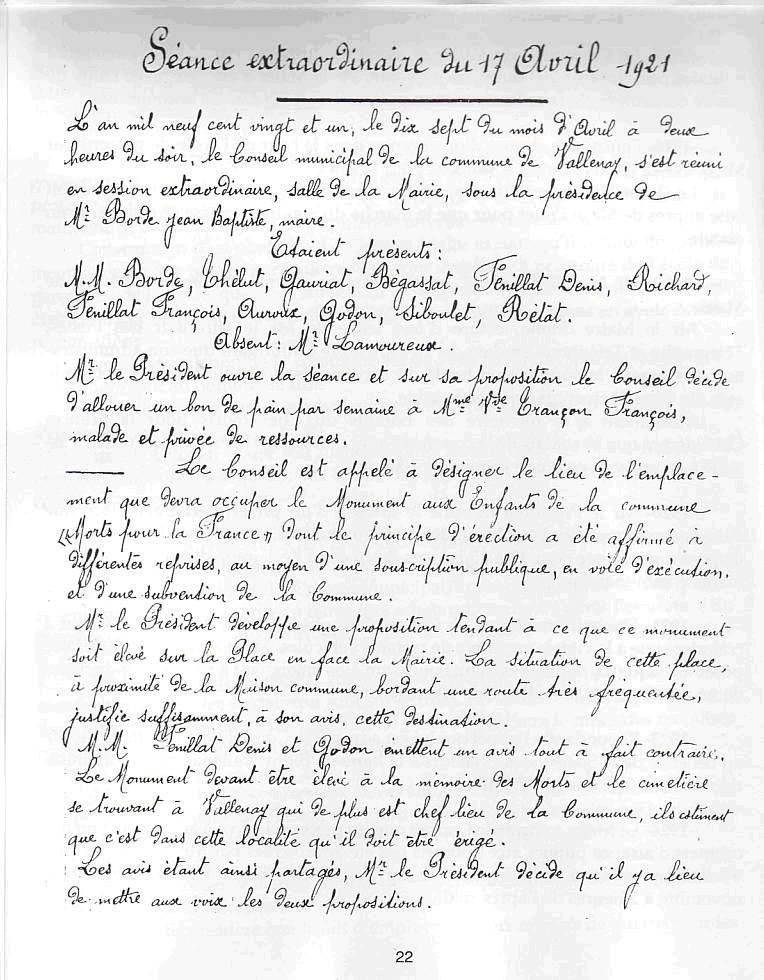 Séance extraordinaire du 17 Avril 1921
L'an mil neuf cent vingt et un, le dix sept du mois d'Avril à deux
heures du soir, le Conseil municipal de la commune de Vallenay, s'est réuni
en session extraordinaire, salle de la Mairie, sous la présidence de
Mr Borde Jean Baptiste, maire.
Etaient présents :
M.M. Borde, Thélut, Gauriat, Bégassat, Fenillat Denis, Richard,
Fenillat François, Auroux, Godon, Siboulet, Rétat.
Absent : Mr Lamoureux.
Mr le Président ouvre la séance et sur sa proposition le Conseil décide
d'allouer un bon de pain par semaine à Mme Vve Trançon François,
malade et privée de ressources.
Le Conseil est appelé à désigner le lieu de l'emplace-
ment que devra occuper le Monument aux Enfants de la commune
"Morts pour la France" dont le principe d'érection a été affirmé à
différentes reprises, au moyen d'une souscription publique, en voie d'exécution,
et d'une subvention de la Commune.
Mr le Président développe une proposition tendant à ce que ce monument
soit élevé sur la Place en face la Mairie. La situation de cette place,
à proximité de la Maison commune, bordant une route très fréquentée,
justifie suffisamment, à son avis, cette destination.
M.M. Fenillat Denis et Godon émettent un avis tout à fait contraire.
Le Monument devant être élevé à la mémoire des Morts et le cimetière
se trouvant à Vallenay qui de plus est chef lieu de la Commune, ils estiment
que c'est dans cette localité qu'il doit être érigé.
Les avis étant ainsi partagés, Mr le Président décide qu'il y a lieu
de mettre aux voix les deux propositions.
22